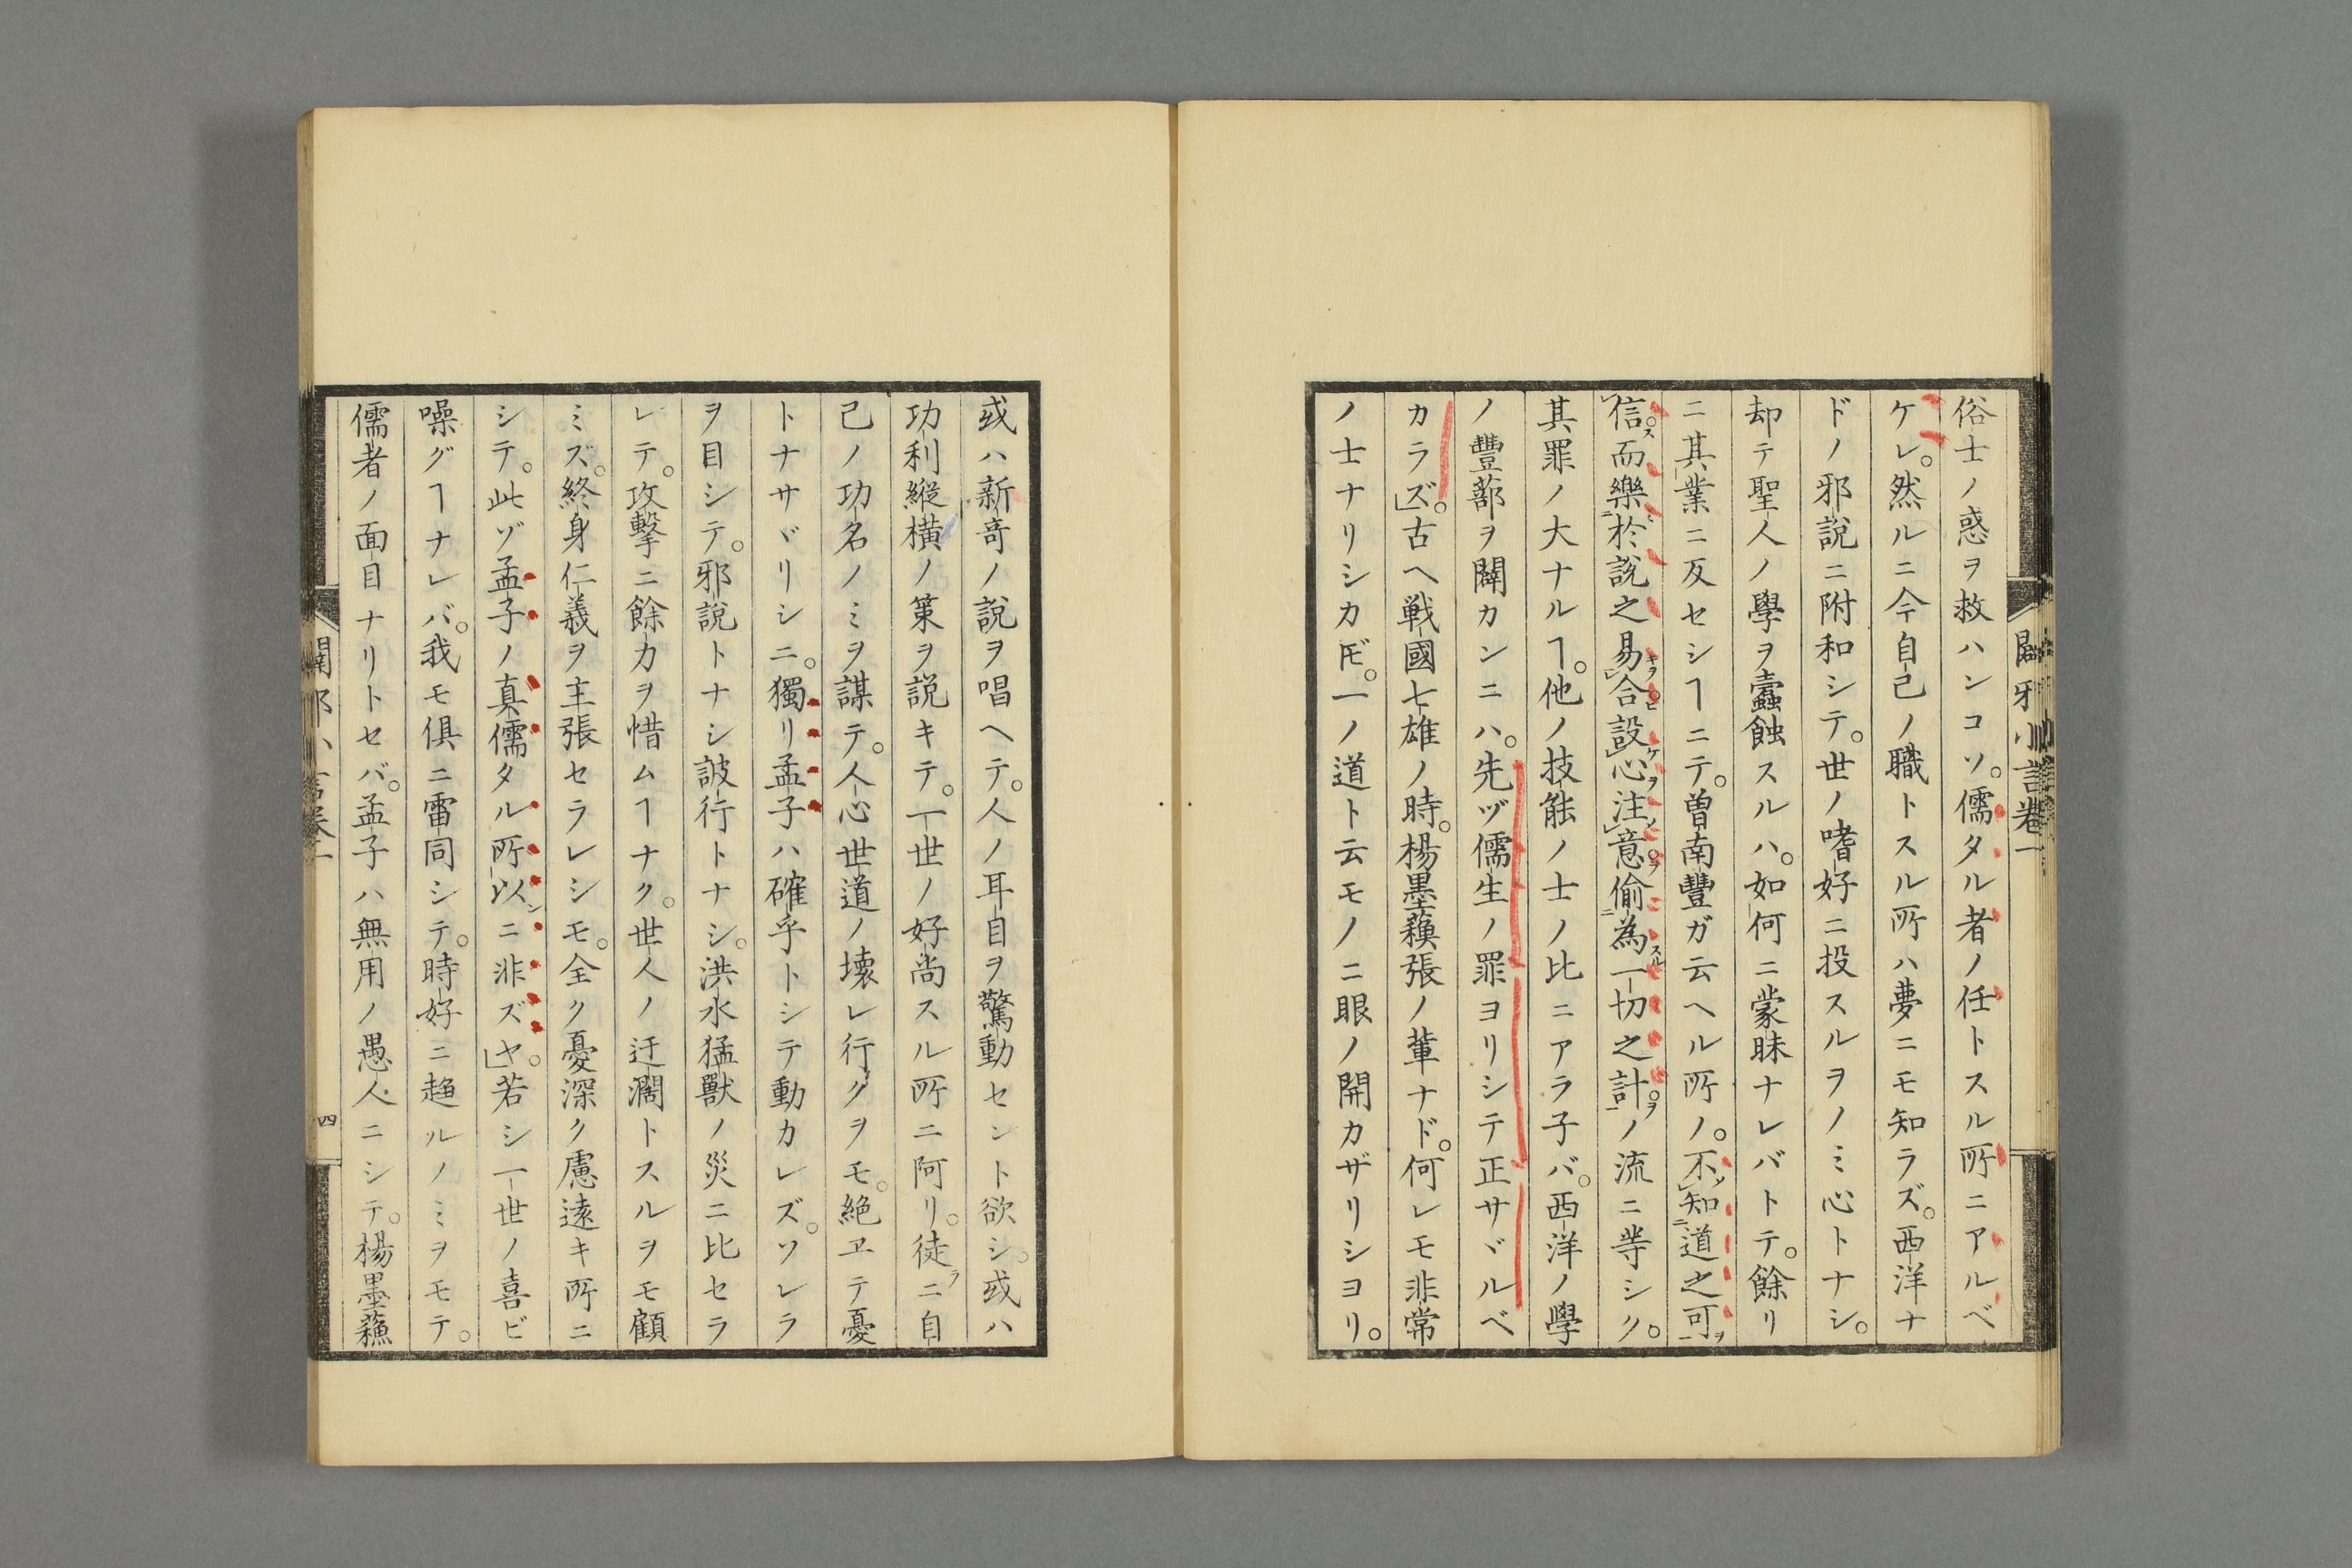 闢邪小言卷一
俗士ノ惑ヲ救ハンコソ。儒タル者ノ任トスル所ニアルベ
ケレ。然ルニ今自己ノ職トスル所ハ夢ニモ知ラズ。西洋ナ
ドノ邪説ニ附和シテ。世ノ嗜好ニ投スルヲノミ心トナシ。
却テ聖人ノ學ヲ蠹蝕スルハ。如何ニ蒙昧ナレバトテ。餘リ
ニ其業ニ反セシヿニテ。曽南豐ガ云ヘル所ノ。不知道之可
信而樂於説之易合設心注意偷為一切之計ノ流ニ等シク。
其罪ノ大ナルヿ。他ノ技能ノ士ノ比ニアラ子バ。西洋ノ學
ノ豐蔀ヲ闢カンニハ。先ヅ儒生ノ罪ヨリシテ正サヾルベ
カラズ。古ヘ戦國七雄ノ時。楊墨蘓張ノ輩ナド。何レモ非常
ノ士ナリシカㄪ。一ノ道ト云モノニ眼ノ開カザリシヨリ。
或ハ新奇ノ説ヲ唱ヘテ。人ノ耳目ヲ驚動セント欲シ。或ハ
功利縦横ノ策ヲ説キテ。一世ノ好尚スル所ニ阿リ。徒ニ自
己ノ功名ノミヲ謀テ。人心世道ノ壊レ行クヲモ。絶ヱテ憂
トナサヾリシニ。獨リ孟子ハ確乎トシテ動カレズ。ソレラ
ヲ目シテ。邪説トナシ詖行トナシ。洪水猛獸ノ災ニ比セラ
レテ。攻撃ニ餘力ヲ惜ムヿナク。世人ノ迂濶トスルヲモ顧
ミズ。終身仁義ヲ主張セラレシモ。全ク憂深ク慮遠キ所ニ
シテ。此ゾ孟子ノ真儒タル所以ニ非ズヤ。若シ一世ノ喜ビ
噪グヿナレバ。我モ俱ニ雷同シテ。時好ニ趋ルノミヲモテ。
儒者ノ面目ナリトセバ。孟子ハ無用ノ愚人ニシテ。楊墨蘓
四